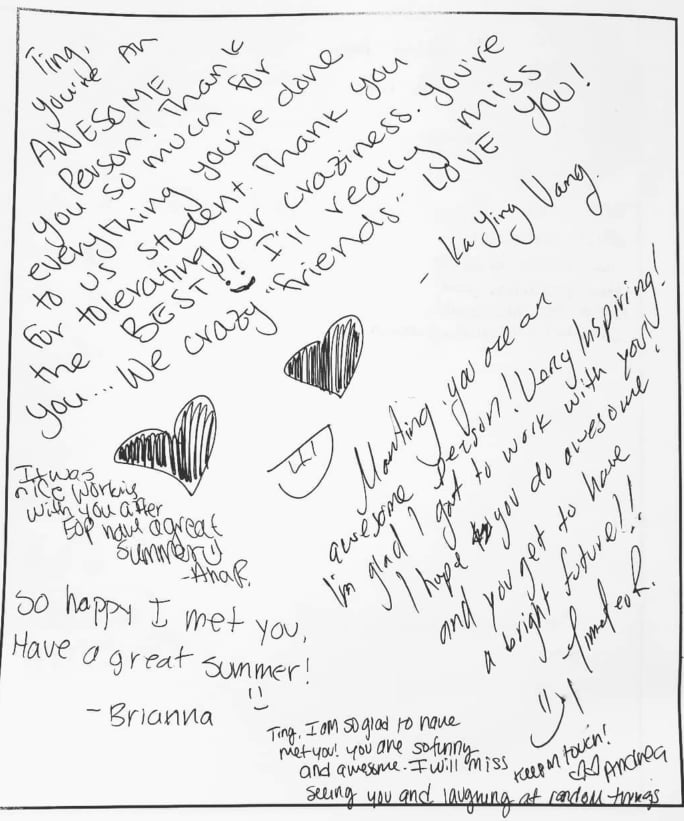 Ting,
You're An
AWESOME
Person! Thank
you so much for
everything you've done
to us student. Thank you
for tolerating our craziness. You're
the BEST!! I'll really miss
you... We crazy "friends" LOVE YOU!
- Ka Ying Vang.
Manting, you are an
awesome person! Very Inspiring!
I'm glad I got to work with you!
I hope you do awesome
and you get to have
a bright future!!
It was
nice working
with you after
EOP have a great
summer :)
- Ana R.
So happy I met you,
Have a great summer!
:)
- Brianna
Ting, I am so glad to have
met you! you are so funny
and awesome. I will miss
seeing you and laughing at random things
Keep in touch!
Andrea